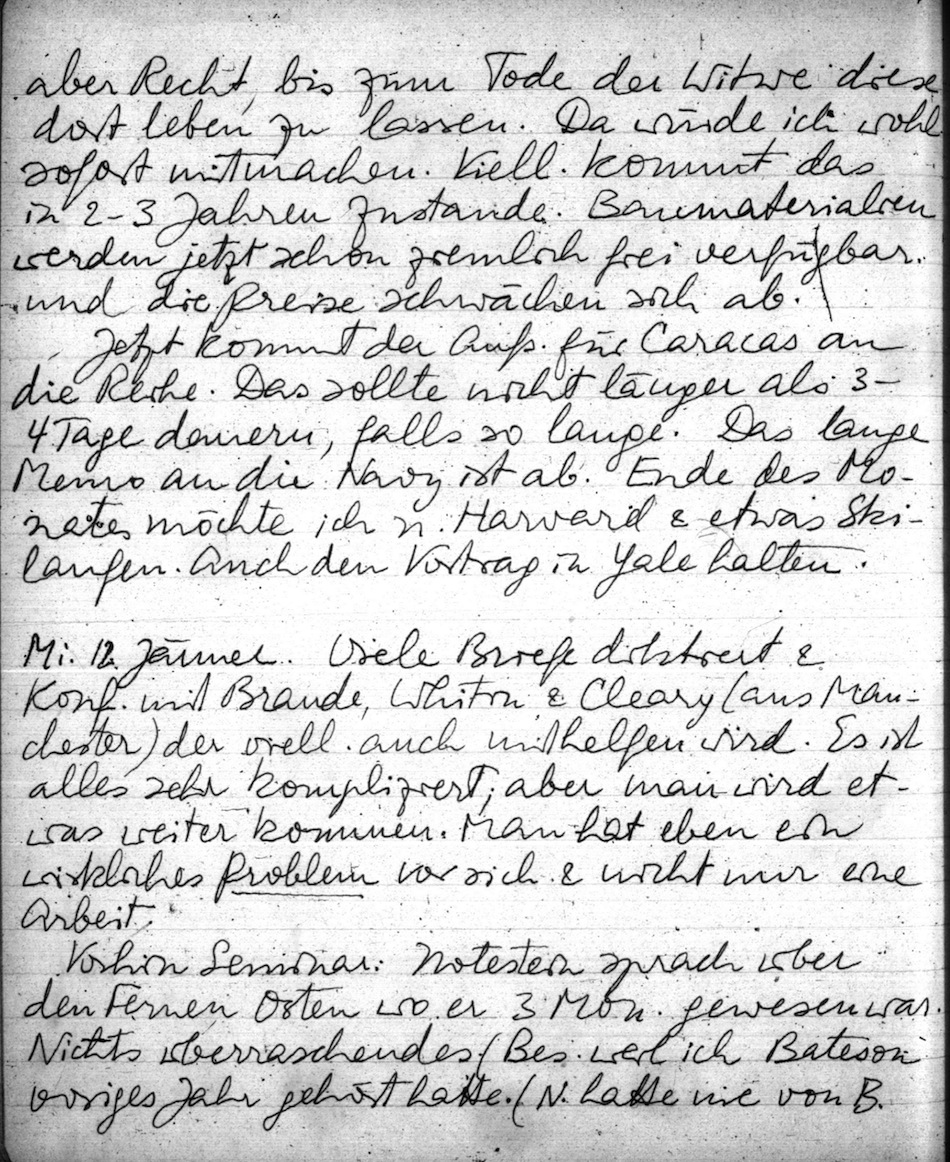 aber Recht, bis zum Tode der Witwe diese
dort leben zu lassen. Da würde ich wohl
sofort mitmachen. Viell. kommt das
in 2-3 Jahren zustande. Baumaterialien
werden jetzt schon ziemlich frei verfügbar.
und die Preise schwächen sich ab.
Jetzt kommt der Aufs. für Caracas an
die Reihe. Das sollte nicht länger als 3-
4 Tage dauern, falls so lange. Das lange
Memo an die Navy ist ab. Ende des Mo-
nates möchte ich n. Harvard & etwas Ski-
laufen. Auch den Vortrag in Yale halten.
Mi. 12. Jänner. Viele Briefe diktiert &
Konf. mit Brande, Whitin & Cleary (aus Man-
chester) der viell. auch mithelfen wird. Es ist
alles sehr kompliziert, aber man wird et-
was weiter kommen. Man hat eben ein
wirkliches Problem vor sich & nicht nur eine
Arbeit.
Vorhin Seminar: Notestein sprach über
den Fernen Osten wo er 3 Mon. gewesen war.
Nichts überraschendes (Bes. weil ich Bateson
voriges Jahr gehört hatte. (N. hatte nie von B.